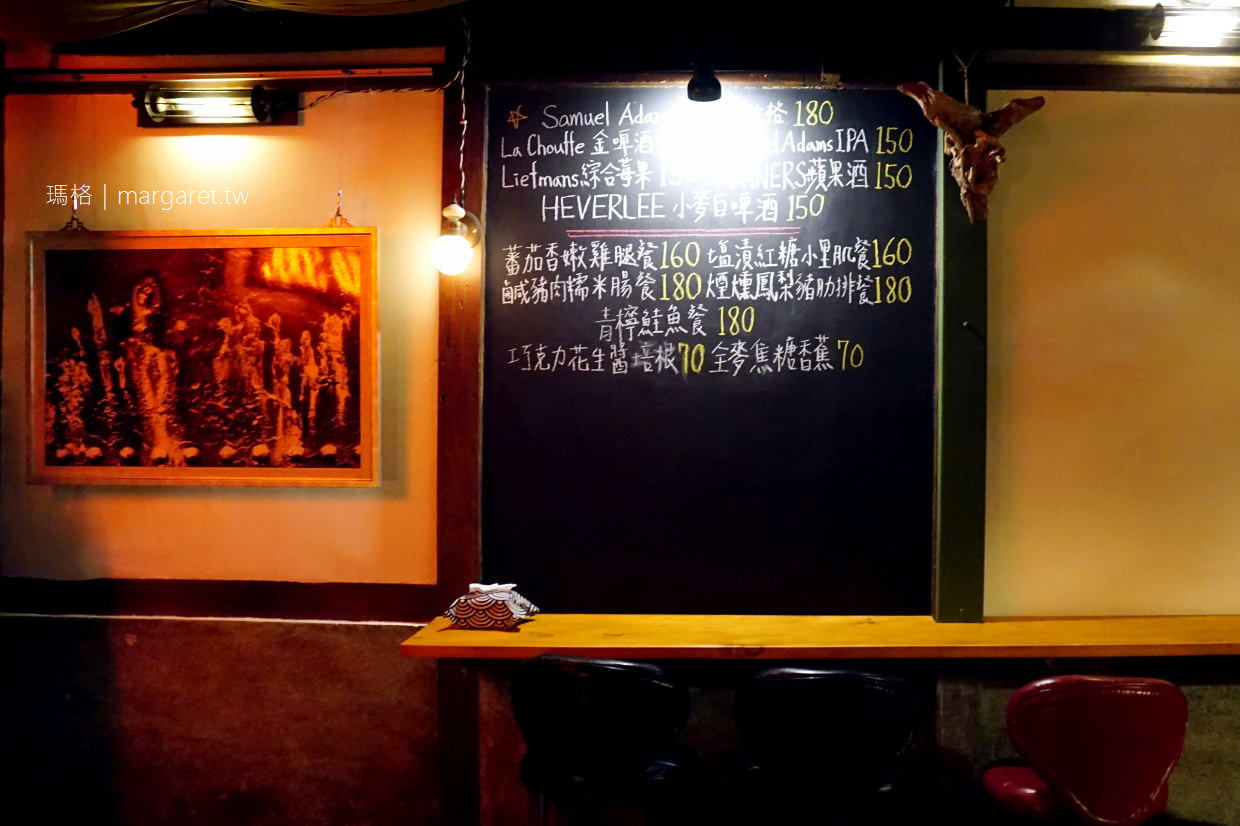 瑪格 | margaret.tw
Samuel Adam 格 180
La Chouffe 金啤酒 el Adams IPA 150
Liefmans 綜合莓果 NERS 蘋果酒 150
HEVERLEE 小麥白啤酒 150
蕃茄香嫩雞腿餐 160 塩漬紅糖小里肌餐 160
鹹豬肉糯米腸餐 180 煙燻鳳梨豬肋排餐 180
青檸鮭魚餐 180
巧克力花生醬培根 70 全麥焦糖香蕉 70